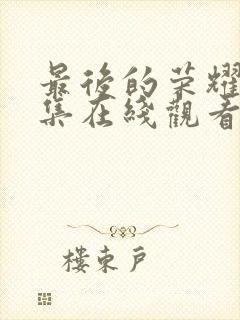 最後的荣耀
集在綫觀看
樓東戶